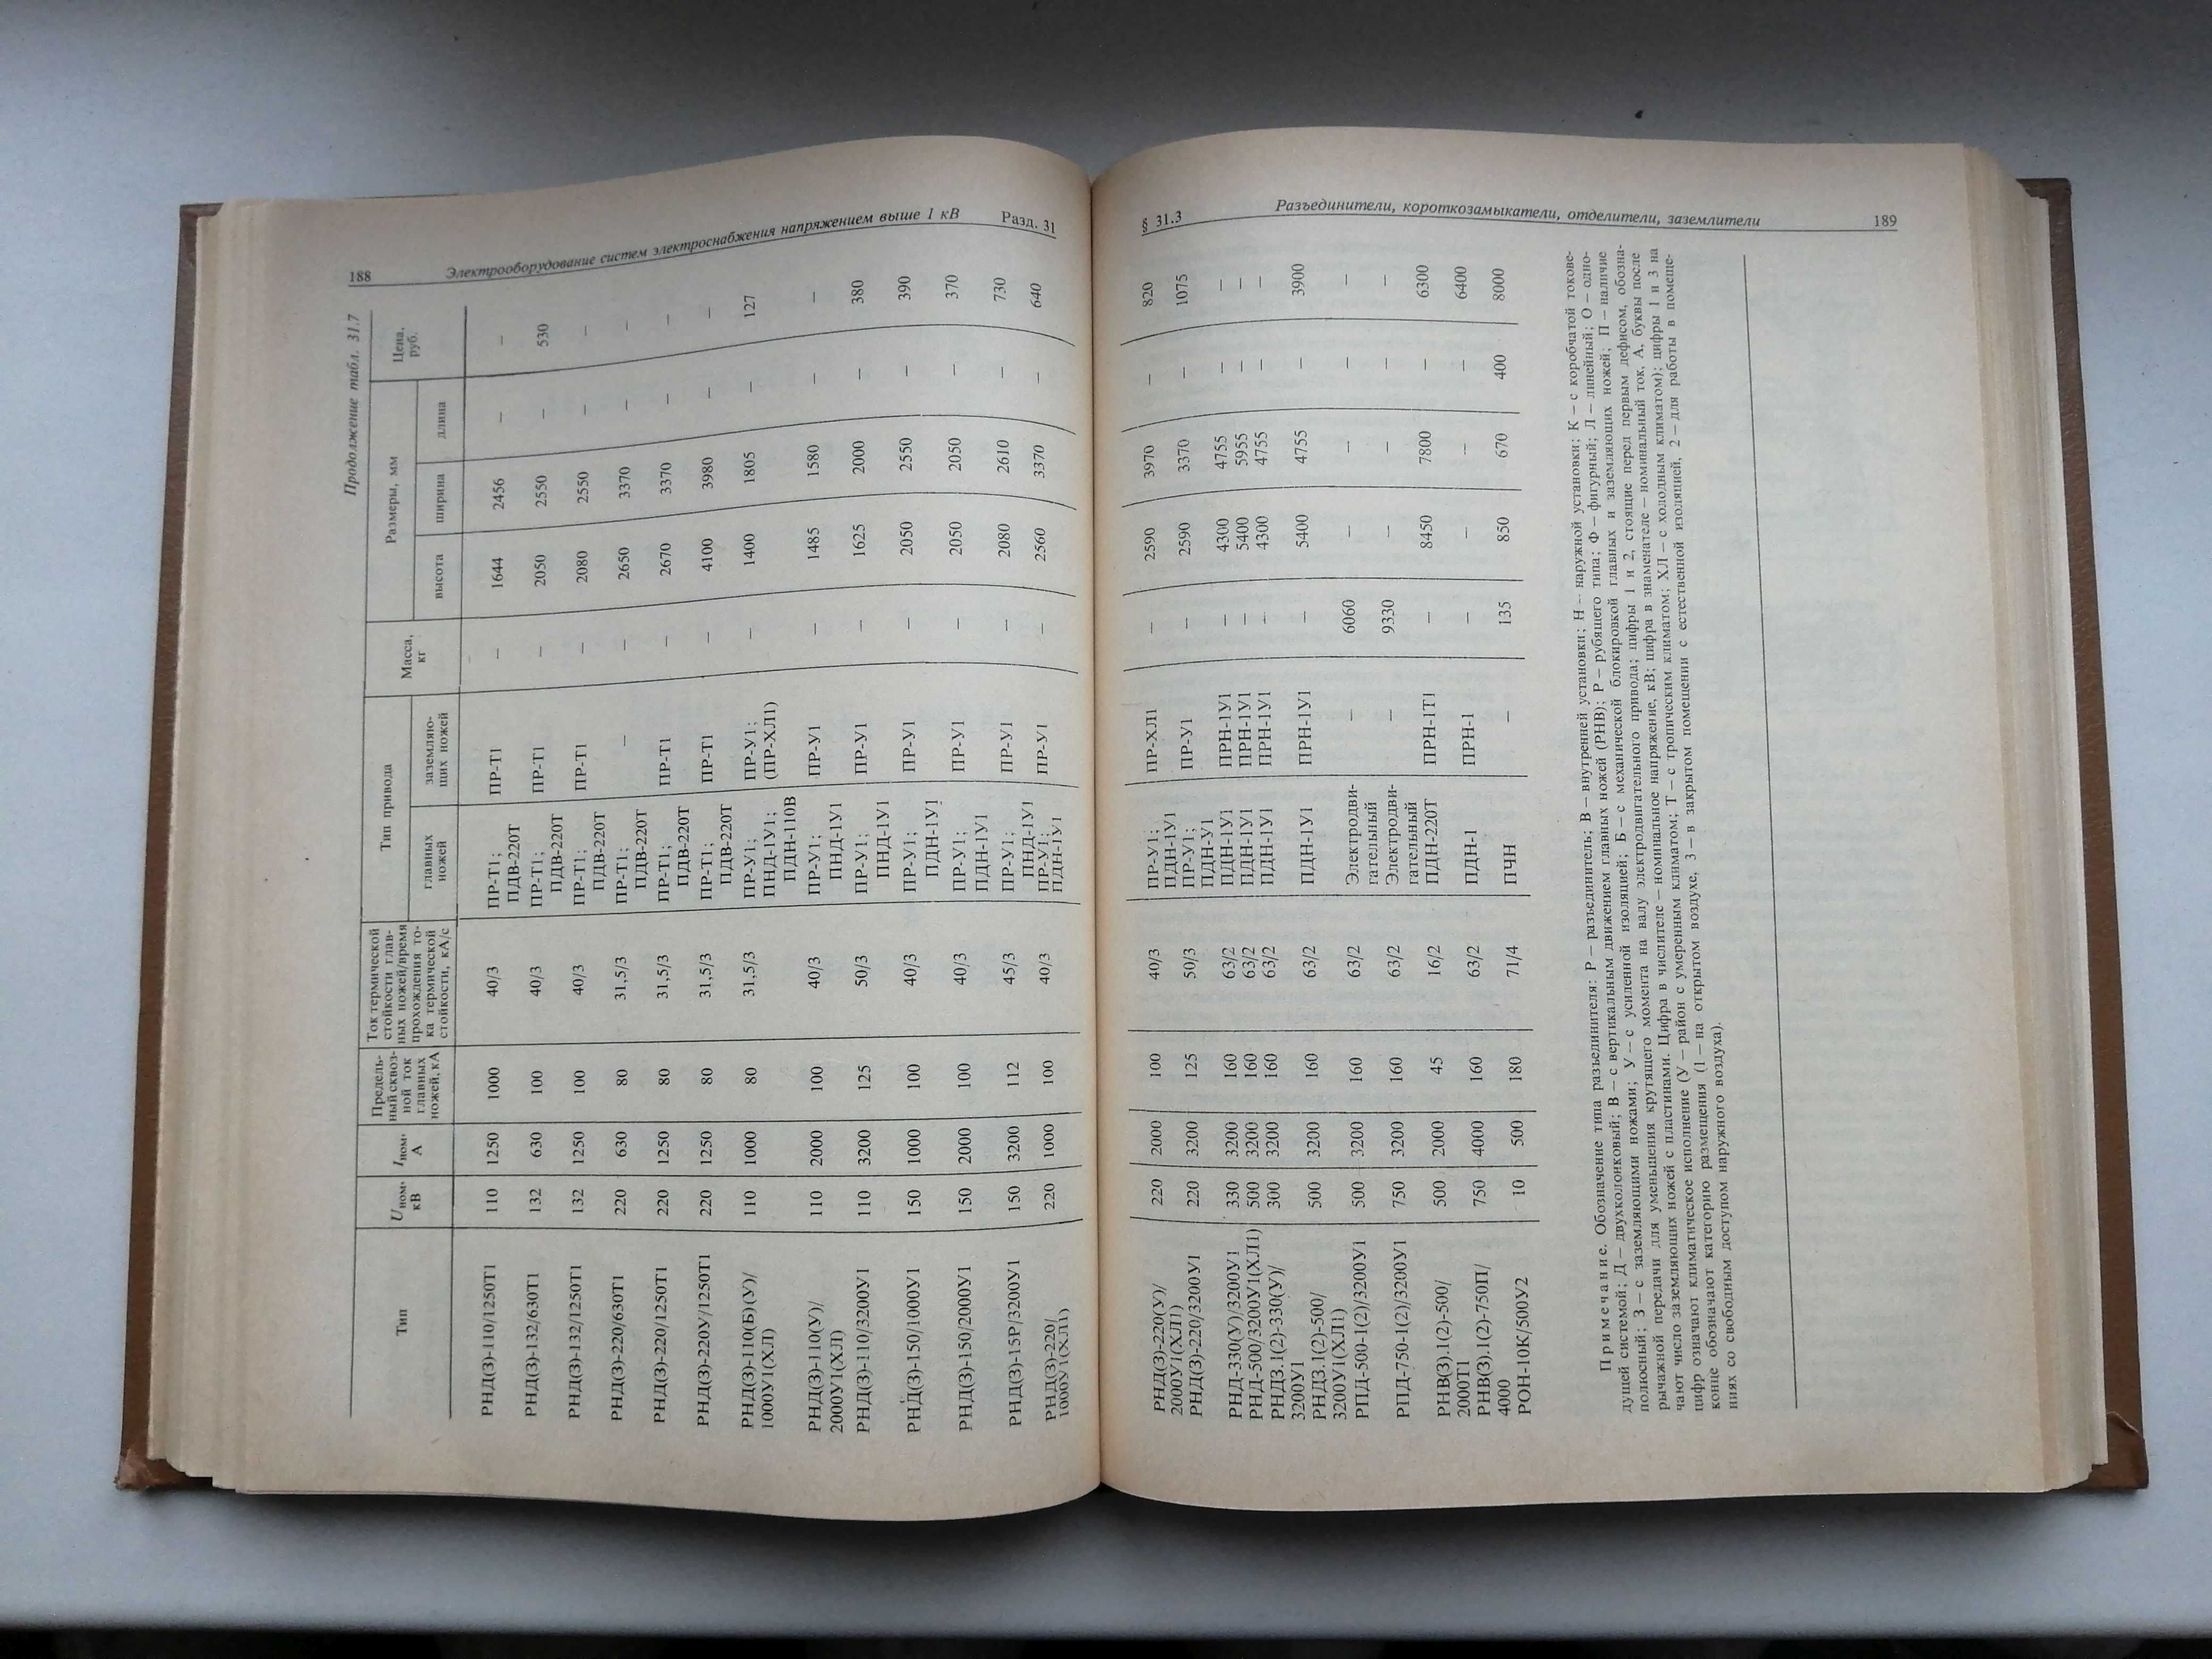 188 Электрооборудование систем электроснабжения напряжением выше 1 кВ Разд. 31
Продолжение табл. 31.7
Тип Uном, кВ Iном, А Предельный сквозной ток главных ножей, кА Ток термической стойкости главных ножей/время прохождения тока термической стойкости, кА/с Тип привода главных ножей заземляющих ножей Масса, кг Размеры, мм высота ширина длина Цена, руб.
РНД(З)-110/1250Т1 110 1250 1000 40/3 ПР-Т1; ПР-Т1 — 1644 2456 — —
ПДВ-220Т
РНД(З)-132/630Т1 132 630 100 40/3 ПР-Т1; ПР-Т1 — 2050 2550 — 530
ПДВ-220Т
РНД(З)-132/1250Т1 132 1250 100 40/3 ПР-Т1; ПР-Т1 — 2080 2550 — —
ПДВ-220Т
РНД(З)-220/630Т1 220 630 80 31,5/3 ПР-Т1; — — 2650 3370 — —
ПДВ-220Т
РНД(З)-220/1250Т1 220 1250 80 31,5/3 ПР-Т1; ПР-Т1 — 2670 3370 — —
ПДВ-220Т
РНД(З)-220У/1250Т1 220 1250 80 31,5/3 ПР-Т1; ПР-Т1 — 4100 3980 — —
ПДВ-220Т
РНД(З)-110(Б)(У)/ 110 1000 80 31,5/3 ПР-У1; ПР-У1; — 1400 1805 — 127
1000У1(ХЛ) ПНД-1У1; (ПР-ХЛ1)
ПДН-110В
РНД(З)-110(У)/ 110 2000 100 40/3 ПР-У1; ПР-У1 — 1485 1580 — —
2000У1(ХЛ) ПНД-1У1
РНД(З)-110/3200У1 110 3200 125 50/3 ПР-У1; ПР-У1 — 1625 2000 — 380
ПНД-1У1
РНД(З)-150/1000У1 150 1000 100 40/3 ПР-У1; ПР-У1 — 2050 2550 — 390
ПДН-1У1
РНД(З)-150/2000У1 150 2000 100 40/3 ПР-У1; ПР-У1 — 2050 2050 — 370
ПДН-1У1
РНД(З)-15Р/3200У1 150 3200 112 45/3 ПР-У1; ПР-У1 — 2080 2610 — 730
ПНД-1У1
РНД(З)-220/ 220 1000 100 40/3 ПР-У1; ПР-У1 — 2560 3370 — 640
1000У1(ХЛ1) ПДН-1У1
§ 31.3 Разъединители, короткозамыкатели, отделители, заземлители 189
РНД(З)-220(У)/ 220 2000 100 40/3 ПР-У1; ПР-ХЛ1 — 2590 3970 — 820
2000У1(ХЛ1) ПДН-1У1
РНД(З)-220/3200У1 220 3200 125 50/3 ПР-У1; ПР-У1 — 2590 3370 — 1075
ПДН-У1
РНД-330(У)/3200У1 330 3200 160 63/2 ПДН-1У1 ПРН-1У1 — 4300 4755 — —
РНД-500/3200У1(ХЛ1) 500 3200 160 63/2 ПДН-1У1 ПРН-1У1 — 5400 5955 — —
РНДЗ.1(2)-330(У)/ 300 3200 160 63/2 ПДН-1У1 ПРН-1У1 — 4300 4755 — —
3200У1
РНДЗ.1(2)-500/ 500 3200 160 63/2 ПДН-1У1 ПРН-1У1 — 5400 4755 — 3900
3200У1(ХЛ1)
РПД-500-1(2)/3200У1 500 3200 160 63/2 Электродви- — 6060 — — — —
гательный
РПД-750-1(2)/3200У1 750 3200 160 63/2 Электродви- — 9330 — — — —
гательный
РНВ(З).1(2)-500/ 500 2000 45 16/2 ПДН-220Т ПРН-1Т1 — 8450 7800 — 6300
2000Т1
РНВ(З).1(2)-750П/ 750 4000 160 63/2 ПДН-1 ПРН-1 — — — — 6400
4000
РОН-10К/500У2 10 500 180 71/4 ПЧН — 135 850 670 400 8000
Примечание. Обозначение типа разъединителя: Р — разъединитель; В — внутренней установки; Н — наружной установки; К — с коробчатой токове-
дущей системой; Д — двухколонковый; В — с вертикальным движением главных ножей (РНВ); Р — рубящего типа; Ф — фигурный; Л — линейный; О — одно-
полюсный; З — с заземляющими ножами; У — с усиленной изоляцией; Б — с механической блокировкой главных и заземляющих ножей; П — наличие
рычажной передачи для уменьшения крутящего момента на валу электродвигательного привода; цифры 1 и 2, стоящие перед первым дефисом, обозна-
чают число заземляющих ножей с пластинами. Цифра в числителе — номинальное напряжение, кВ; цифра в знаменателе — номинальный ток, А, буквы после
цифр означают климатическое исполнение (У — район с умеренным климатом; Т — с тропическим климатом; ХЛ — с холодным климатом); цифры 1 и 3 на
конце обозначают категорию размещения (1 — на открытом воздухе, 3 — в закрытом помещении с естественной изоляцией, 2 — для работы в помеще-
ниях со свободным доступом наружного воздуха).